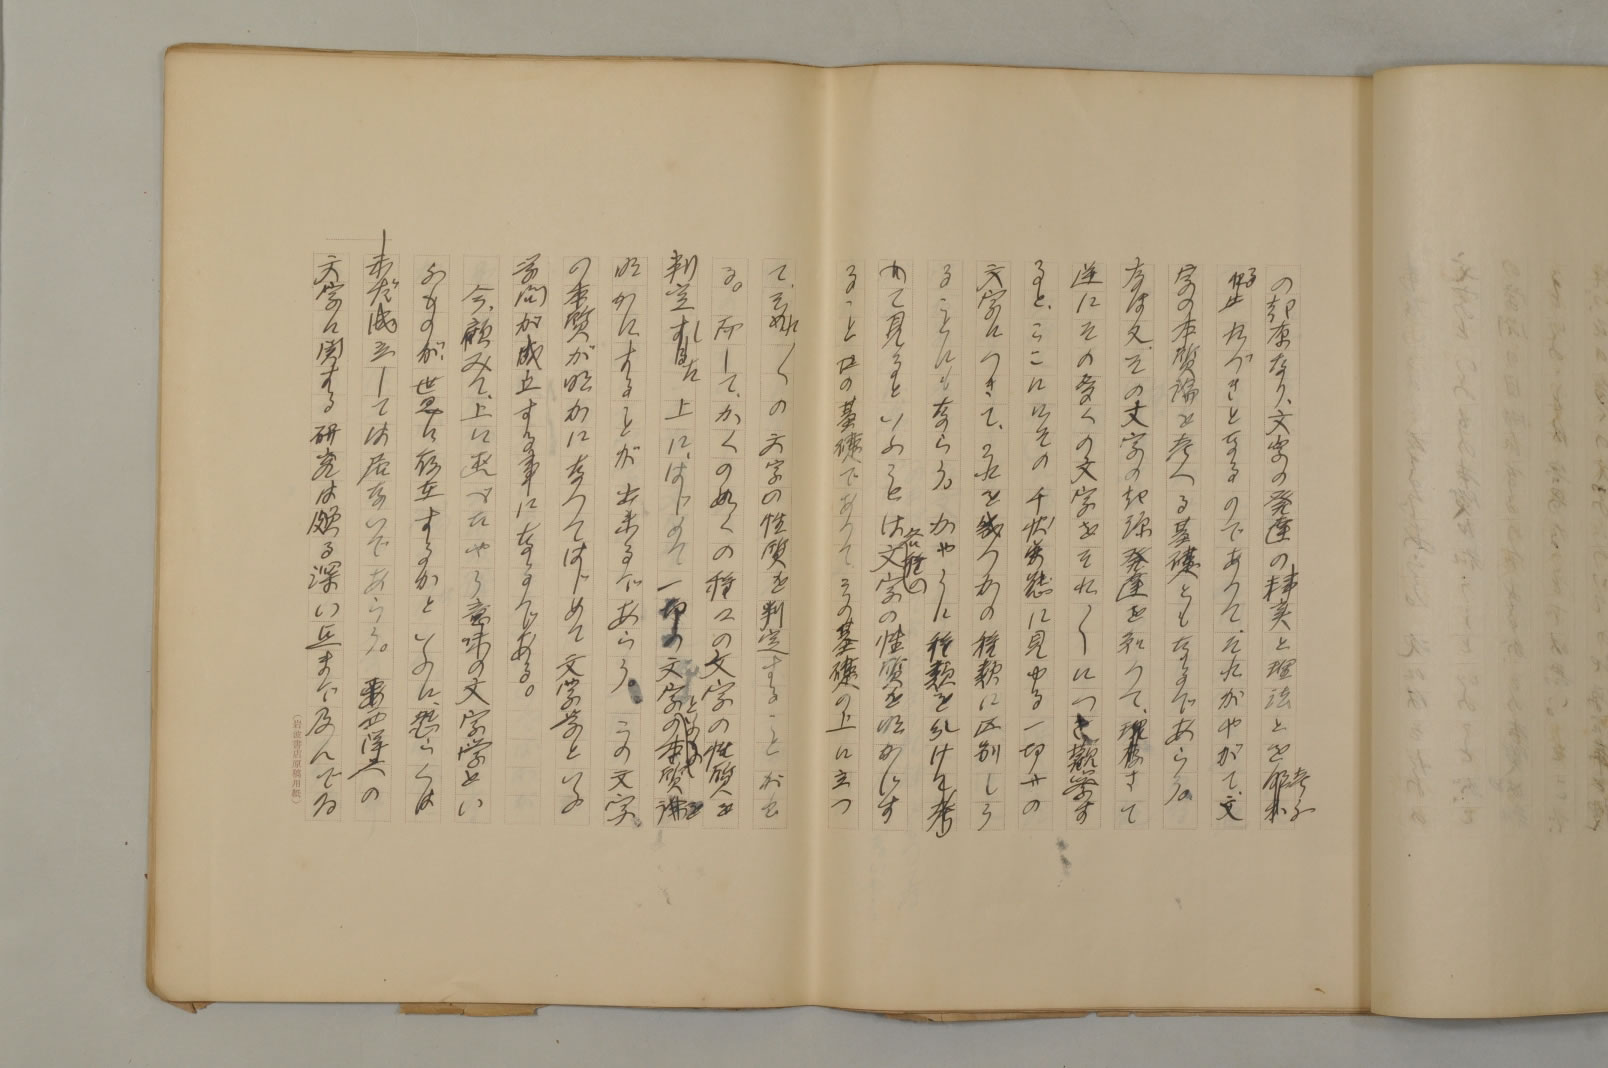 の起原なり、文字の発達の事実と理法とを考ふ
るべきとなるのであつて、それがやがて、文
字の本質論を考へる基礎ともなるであらう。
なほ又、その文字の起源発達を知つて、さて
逆にその多くの文字をそれ〳〵につき観察す
ると、ここにその千状万態に見ゆる一切の
文字につきて、これを幾つかの種類に区別しう
ることにもならう。かやうに種類を分けて考
へて見るといふことは各種の文字の性質を明かにす
ることの基礎であつて、その基礎の上に立つ
て、それ〳〵の文字の性質を判定することが出
る。而して、かくの如くの種々の文字の性質を
判定した上に、はじめて一切の文字の本質といふものを
明かにすることが出来るであらう。この文字
の本質が明かになつてはじめて文字学といふ
学問が成立する事になるのである。
今、顧みて、上に述べたやうな意味の文字学とい
ふものが、世界に存在するかといふに、恐らくは
未だ成立しては居ないであらう。西洋人の
文字に関する研究は頗る深い所まで及んでゐ
(岩波書店原稿用紙)